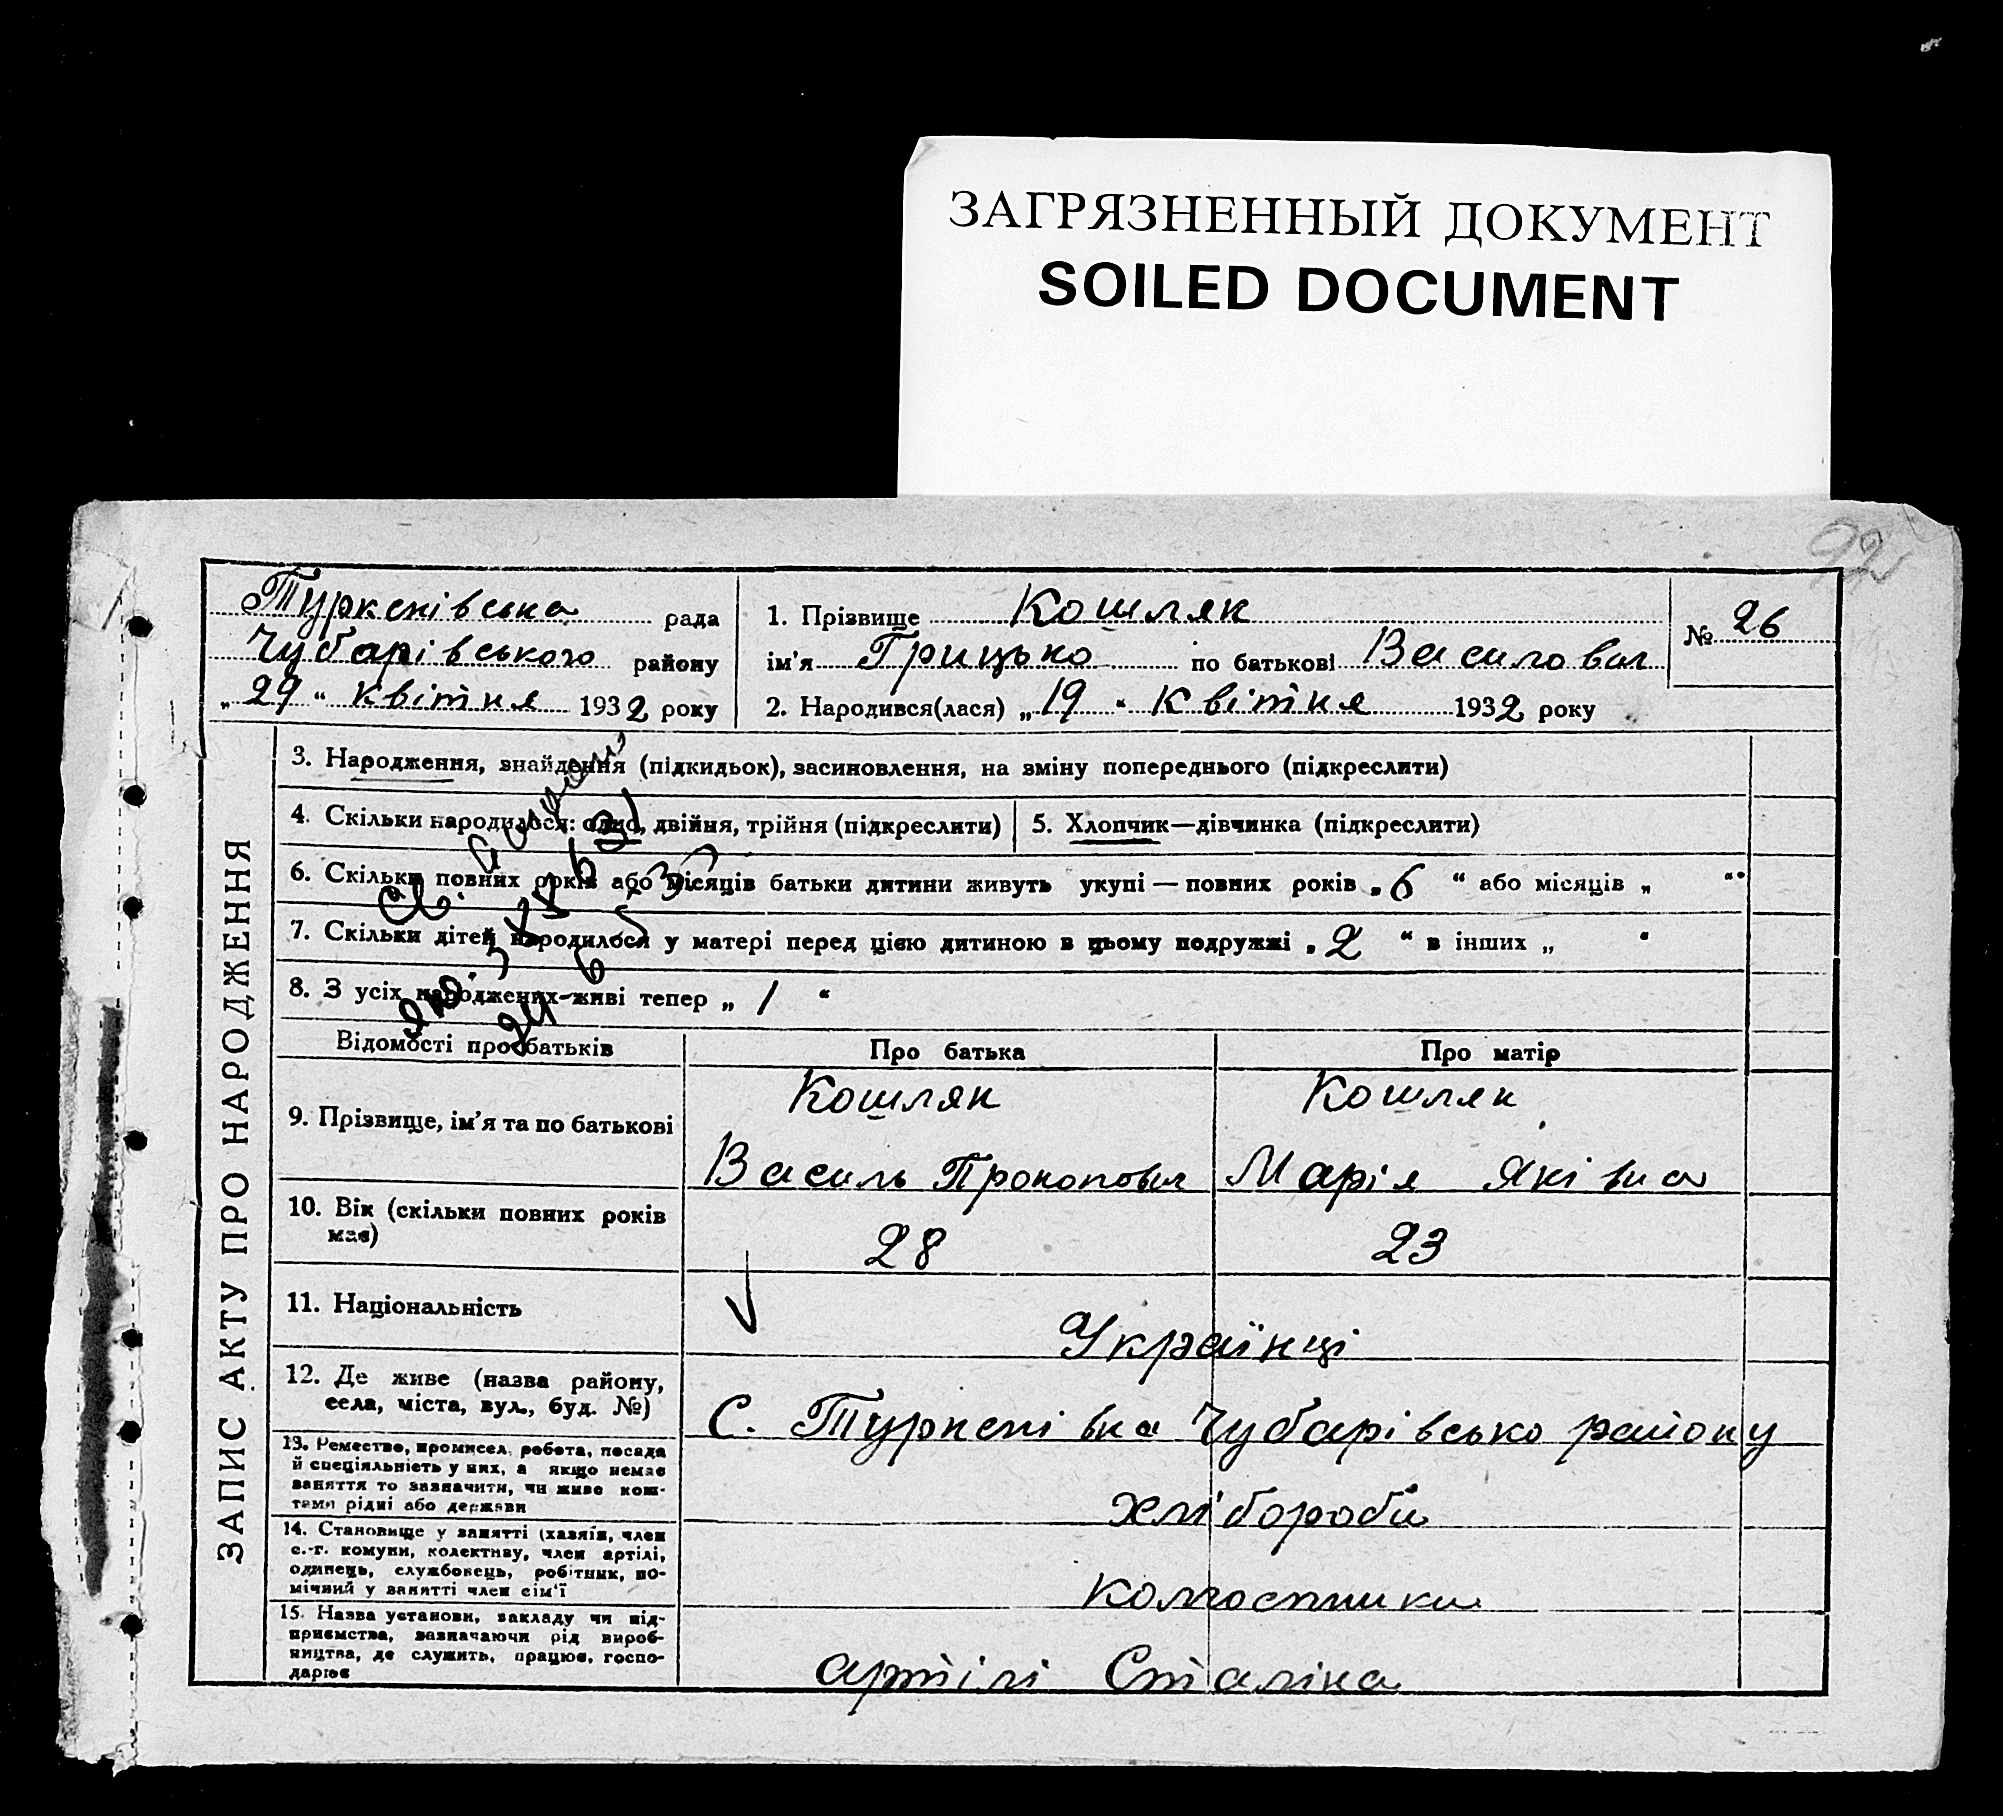 ЗАГРЯЗНЕННЫЙ ДОКУМЕНТ
SOILED DOCUMENT
92
Туркенівська рада
Чубарівського району
„ 29 “ квітня 1932 року
1. Прізвище Кошляк
ім'я Грицько по батькові Василович
№ 26
2. Народився(лася) „ 19 “ квітня 1932 року
ЗАПИС АКТУ ПРО НАРОДЖЕННЯ
3. Народження, знайдення (підкидьок), засиновлення, на зміну попереднього (підкреслити)
4. Скільки народилося: одно, двійня, трійня (підкреслити)
5. Хлопчик—дівчинка (підкреслити)
6. Скільки повних років або місяців батьки дитини живуть укупі — повних років „ 6 “ або місяців „ “
7. Скільки дітей народилося у матері перед цією дитиною в цьому подружжі „ 2 “ в інших „ “
8. З усіх народжених живі тепер „ 1 “
Відомості про батьків
Про батька
Про матір
9. Прізвище, ім'я та по батькові
Кошляк
Василь Прокопович
Кошляк
Марія Яківна
10. Вік (скільки повних років має)
28
23
11. Національність
Українці
12. Де живе (назва району,
села, міста, вул., буд. №)
С. Туркенівка Чубарівсько району
13. Ремество, промисел, робота, посада
й спеціяльність у них, а якщо немає
заняття то зазначити, чи живе кош-
тами рідні або держави
хлібороби
14. Становище у занятті (хазяїн, член
с.-г. комуни, колективу, член артілі,
одинець, службовець, робітник, по-
мічний у занятті член сім'ї
колгоспники
15. Назва установи, закладу чи під-
приємства, зазначаючи рід вироб-
ництва, де служить, працює, госпо-
дарює
артілі Сталіна